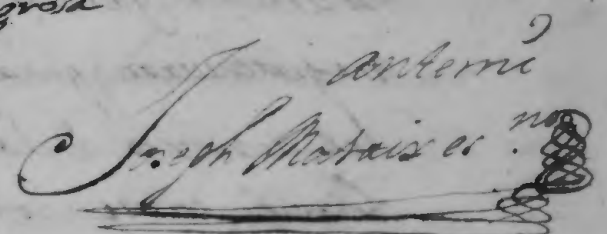 grosa
Ante mi
Joseph Mataix es.no